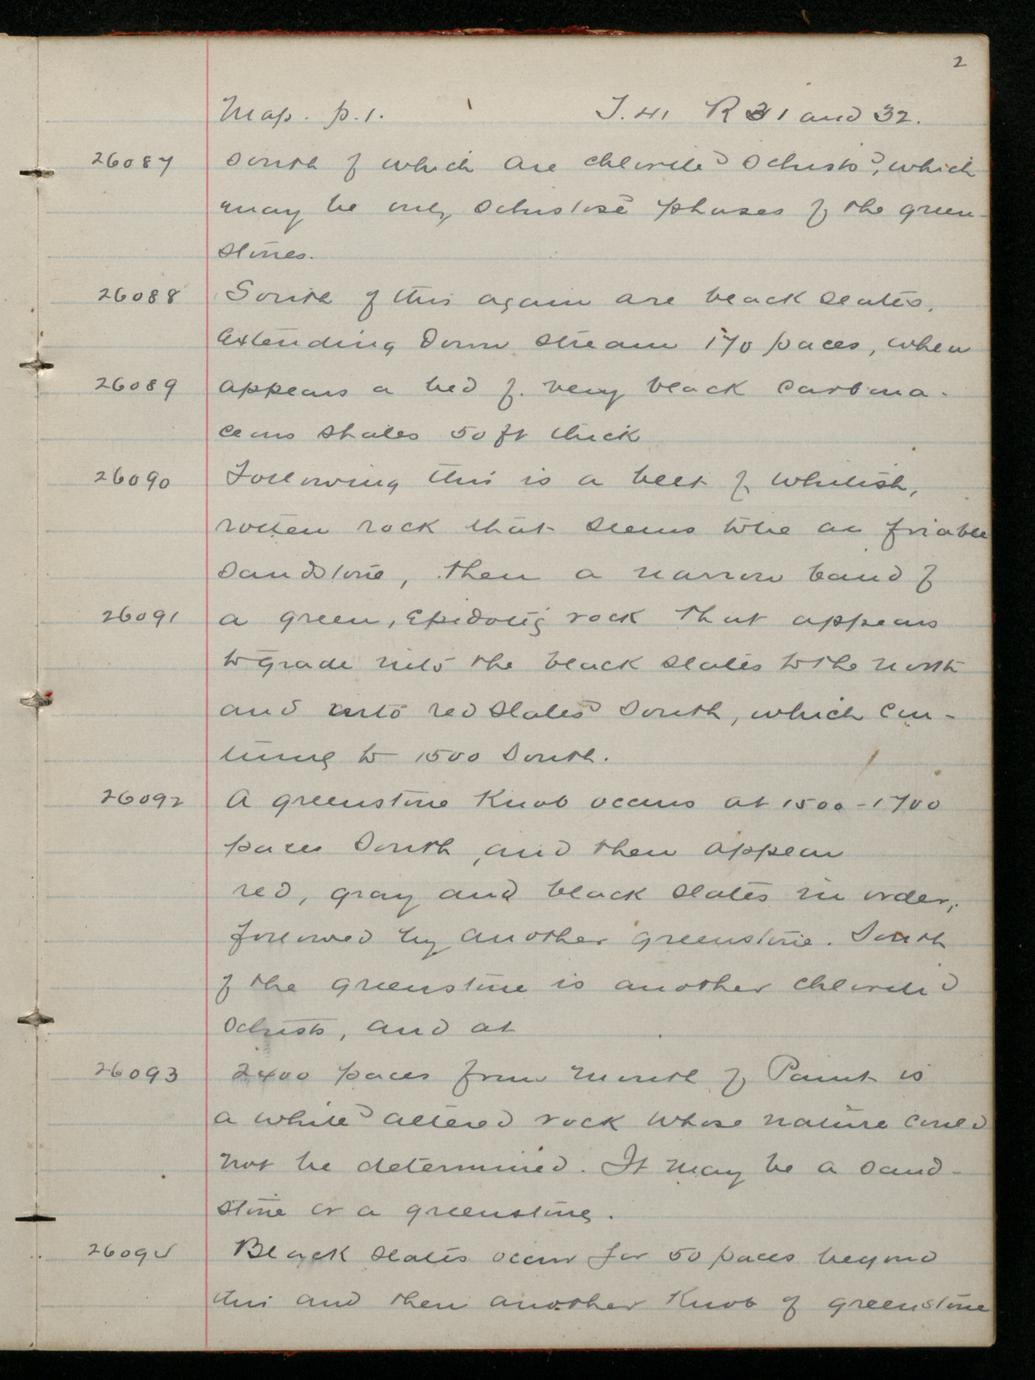 2
Map. p.1. T.41 R 31 and 32.
26087 South of which are chlorite schists, which
may be only schistose phases of the green-
stones.
26088 South of this again are black slates,
extending down stream 170 paces, when
26089 appears a bed of very black carbona-
ceous shales 50 ft thick
26090 Following this is a belt of whitish,
rotten rock that seems to be an friable
sandstone, then a narrow band of
26091 a green, epidotic rock that appears
to grade into the black slates to the north
and into red slates south, which con-
tinue to 1500 South.
26092 A greenstone Knob occurs at 1500-1700
paces South, and then appear
red, gray and black slates in order,
followed by another greenstone. South
of the greenstone is another chlorite
schists, and at
26093 2400 paces from mouth of Paint is
a white altered rock whose nature could
not be determined. It may be a sand-
stone or a greenstone.
26094 Black slates occur for 50 paces beyond
this and then another Knob of greenstone